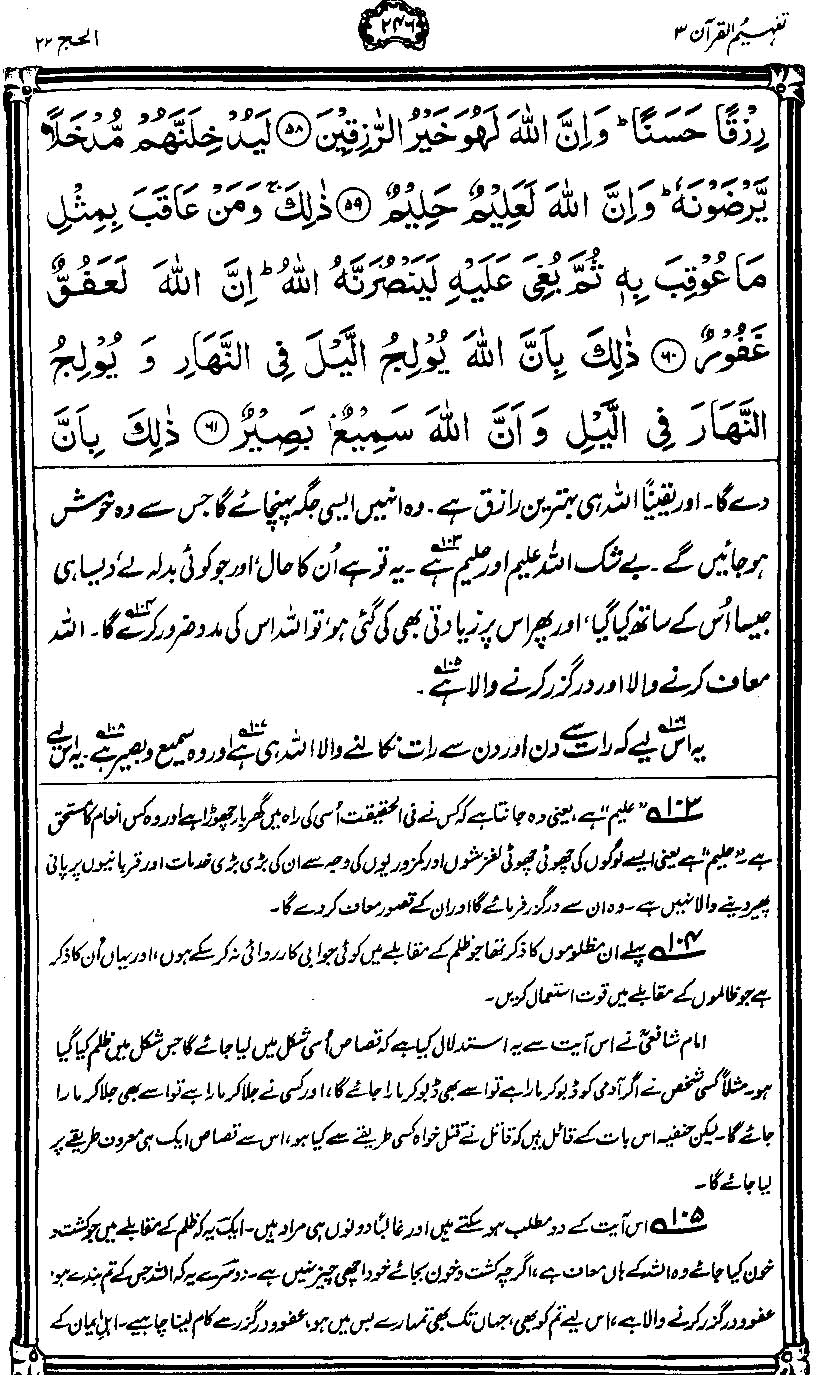 تفہیم القرآن ۳
۲۴۶
الحج ۲۲
رِزْقًا حَسَنًا ؕ وَاِنَّ اللّٰهَ لَهُوَ خَيْرُ الرّٰزِقِيْنَ ﴿۵۸﴾ لَيُدْخِلَنَّهُمْ مُّدْخَلًا
يَّرْضَوْنَهٗ ؕ وَاِنَّ اللّٰهَ لَعَلِيْمٌ حَلِيْمٌ ﴿۵۹﴾ ذٰلِكَ ۚ وَمَنْ عَاقَبَ بِمِثْلِ
مَا عُوْقِبَ بِهٖ ثُمَّ بُغِىَ عَلَيْهِ لَيَنْصُرَنَّهُ اللّٰهُ ؕ اِنَّ اللّٰهَ لَعَفُوٌّ
غَفُوْرٌ ﴿۶۰﴾ ذٰلِكَ بِاَنَّ اللّٰهَ يُوْلِجُ الَّيْلَ فِى النَّهَارِ وَ يُوْلِجُ
النَّهَارَ فِى الَّيْلِ وَ اَنَّ اللّٰهَ سَمِيْعٌۢ بَصِيْرٌ ﴿۶۱﴾ ذٰلِكَ بِاَنَّ
دے گا۔ اور یقیناً اللہ ہی بہترین رازق ہے۔ وہ انہیں ایسی جگہ پہنچائے گا جس سے وہ خوش
ہو جائیں گے۔ بے شک اللہ علیم اور حلیم ہے۱۰۳۔ یہ تو ہے اُن کا حال، اور جو کوئی بدلہ لے، ویسا ہی
جیسا اُس کے ساتھ کیا گیا، اور پھر اس پر زیادتی بھی کی گئی ہو، تو اللہ اس کی مدد ضرور کرے گا۱۰۴۔ اللہ
معاف کرنے والا اور درگزر کرنے والا ہے۱۰۵۔
یہ اس۱۰۶ لیے کہ رات سے دن اور دن سے رات نکالنے والا اللہ ہی ہے۱۰۷ اور وہ سمیع و بصیر ہے۱۰۸۔ یہ اس لیے
۱۰۳ ”علیم“ ہے، یعنی وہ جانتا ہے کہ کس نے فی الحقیقت اُسی کی راہ میں گھر بار چھوڑا ہے اور وہ کس انعام کا مستحق
ہے۔ ”حلیم“ ہے یعنی ایسے لوگوں کی چھوٹی چھوٹی لغزشوں اور کمزوریوں کی وجہ سے ان کی بڑی بڑی خدمات اور قربانیوں پر پانی
پھیر دینے والا نہیں ہے۔ وہ ان سے درگزر فرمائے گا اور ان کے قصور معاف کر دے گا۔
۱۰۴ پہلے ان مظلوموں کا ذکر تھا جو ظلم کے مقابلے میں کوئی جوابی کارروائی نہ کر سکے ہوں، اور یہاں اُن کا ذکر
ہے جو ظالموں کے مقابلے میں قوت استعمال کریں۔
امام شافعیؒ نے اس آیت سے یہ استدلال کیا ہے کہ قصاص اُسی شکل میں لیا جائے گا جس شکل میں ظلم کیا گیا
ہو۔ مثلاً کسی شخص نے اگر آدمی کو ڈبو کر مارا ہے تو اسے بھی ڈبو کر مارا جائے گا، اور کسی نے جلا کر مارا ہے تو اسے بھی جلا کر مارا
جائے گا۔ لیکن حنفیہ اس بات کے قائل ہیں کہ قاتل نے قتل خواہ کسی طریقے سے کیا ہو، اس سے قصاص ایک ہی معروف طریقے پر
لیا جائے گا۔
۱۰۵ اس آیت کے دو مطلب ہو سکتے ہیں اور غالباً دونوں ہی مراد ہیں۔ ایک یہ کہ ظلم کے مقابلے میں جو کشت و
خون کیا جائے وہ اللہ کے ہاں معاف ہے، اگرچہ کشت و خون بجائے خود اچھی چیز نہیں ہے۔ دوسرے یہ کہ اللہ جس کے تم بندے ہو،
عفو و درگزر کرنے والا ہے، اس لیے تم کو بھی، جہاں تک بھی تمہارے بس میں ہو، عفو و درگزر سے کام لینا چاہیے۔ اہلِ ایمان کے